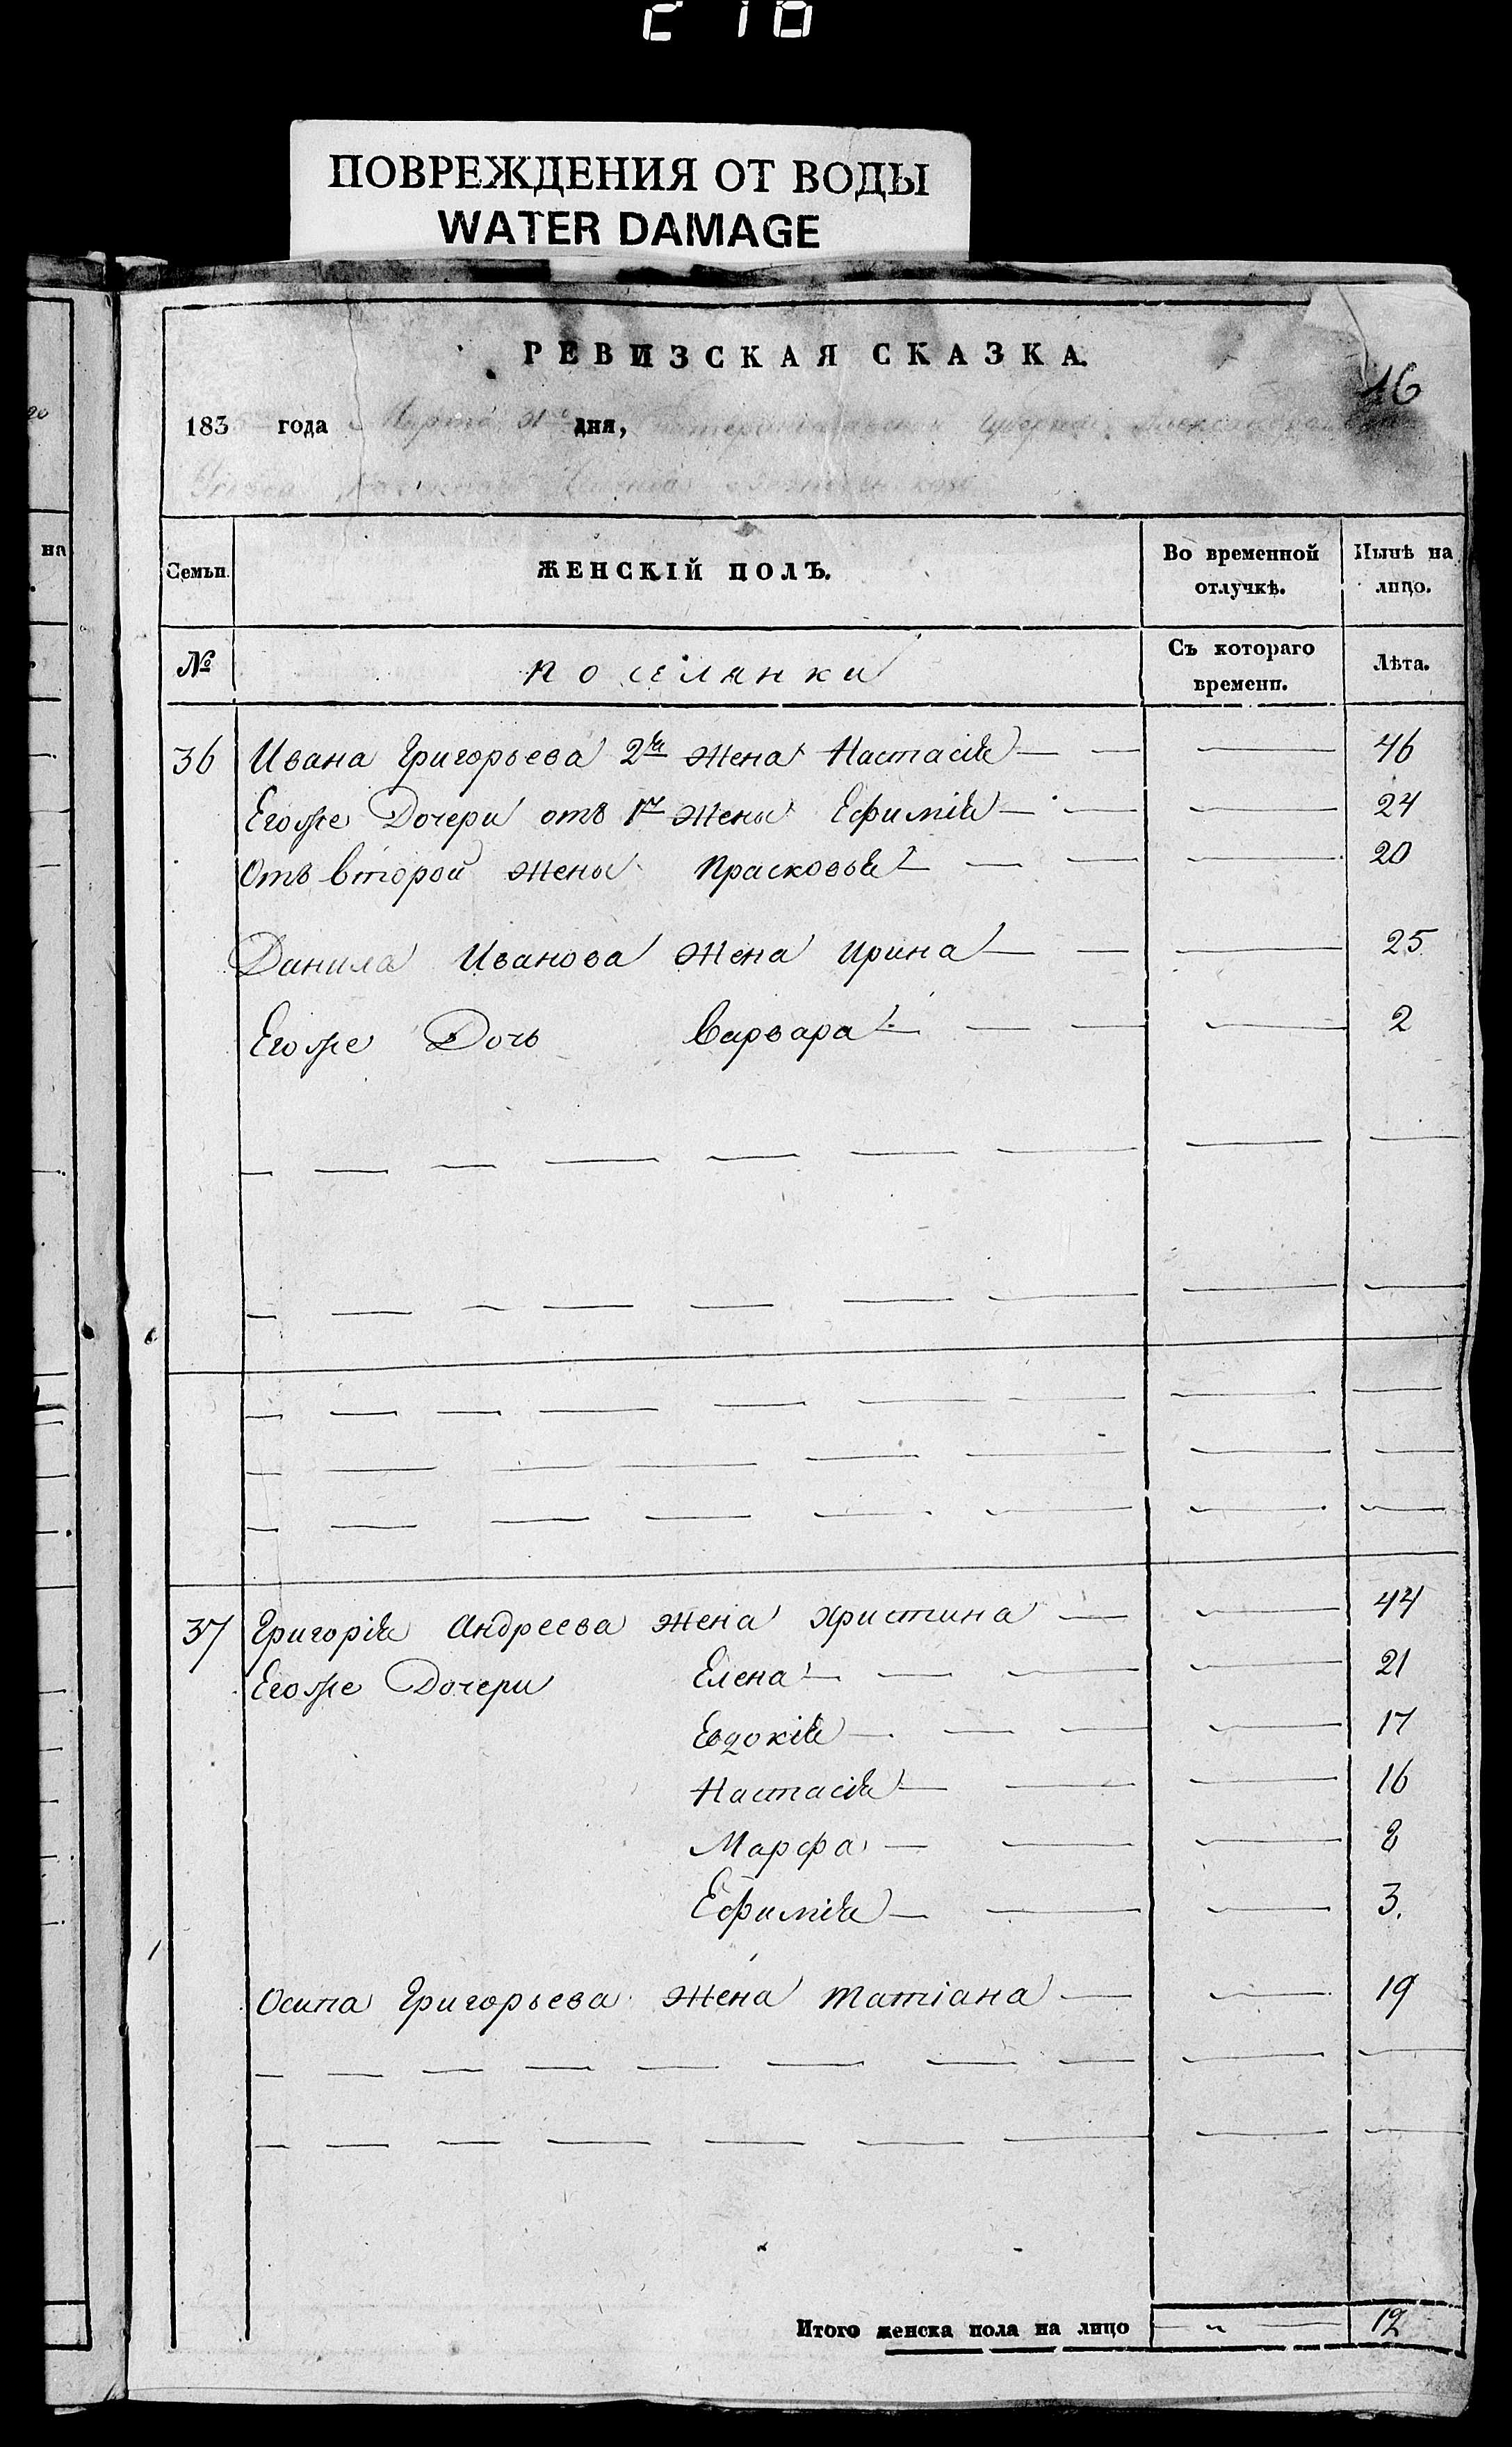 210
ПОВРЕЖДЕНИЯ ОТ ВОДЫ
WATER DAMAGE
РЕВИЗСКАЯ СКАЗКА.
16
183 года Марта дня, Губернии
Семьи. ЖЕНСКІЙ ПОЛЪ. Во временной отлучкѣ. Нынѣ на лицо.
№ поселянки Съ котораго времени. Лѣта.
36 Ивана Григорьева 2я жена Настасія 46
Егоже Дочери отъ 1й жены Ефимія 24
Отъ второй жены Прасковья 20
Данила Иванова жена Ирина 25
Егоже Дочь Варвара 2
37 Григорія Андреева жена Христина 44
Егоже Дочери Елена 21
Евдокія 17
Настасія 16
Марфа 8
Ефимія 3.
Осипа Григорьева жена Татіана 19
Итого женска пола на лицо 12
на